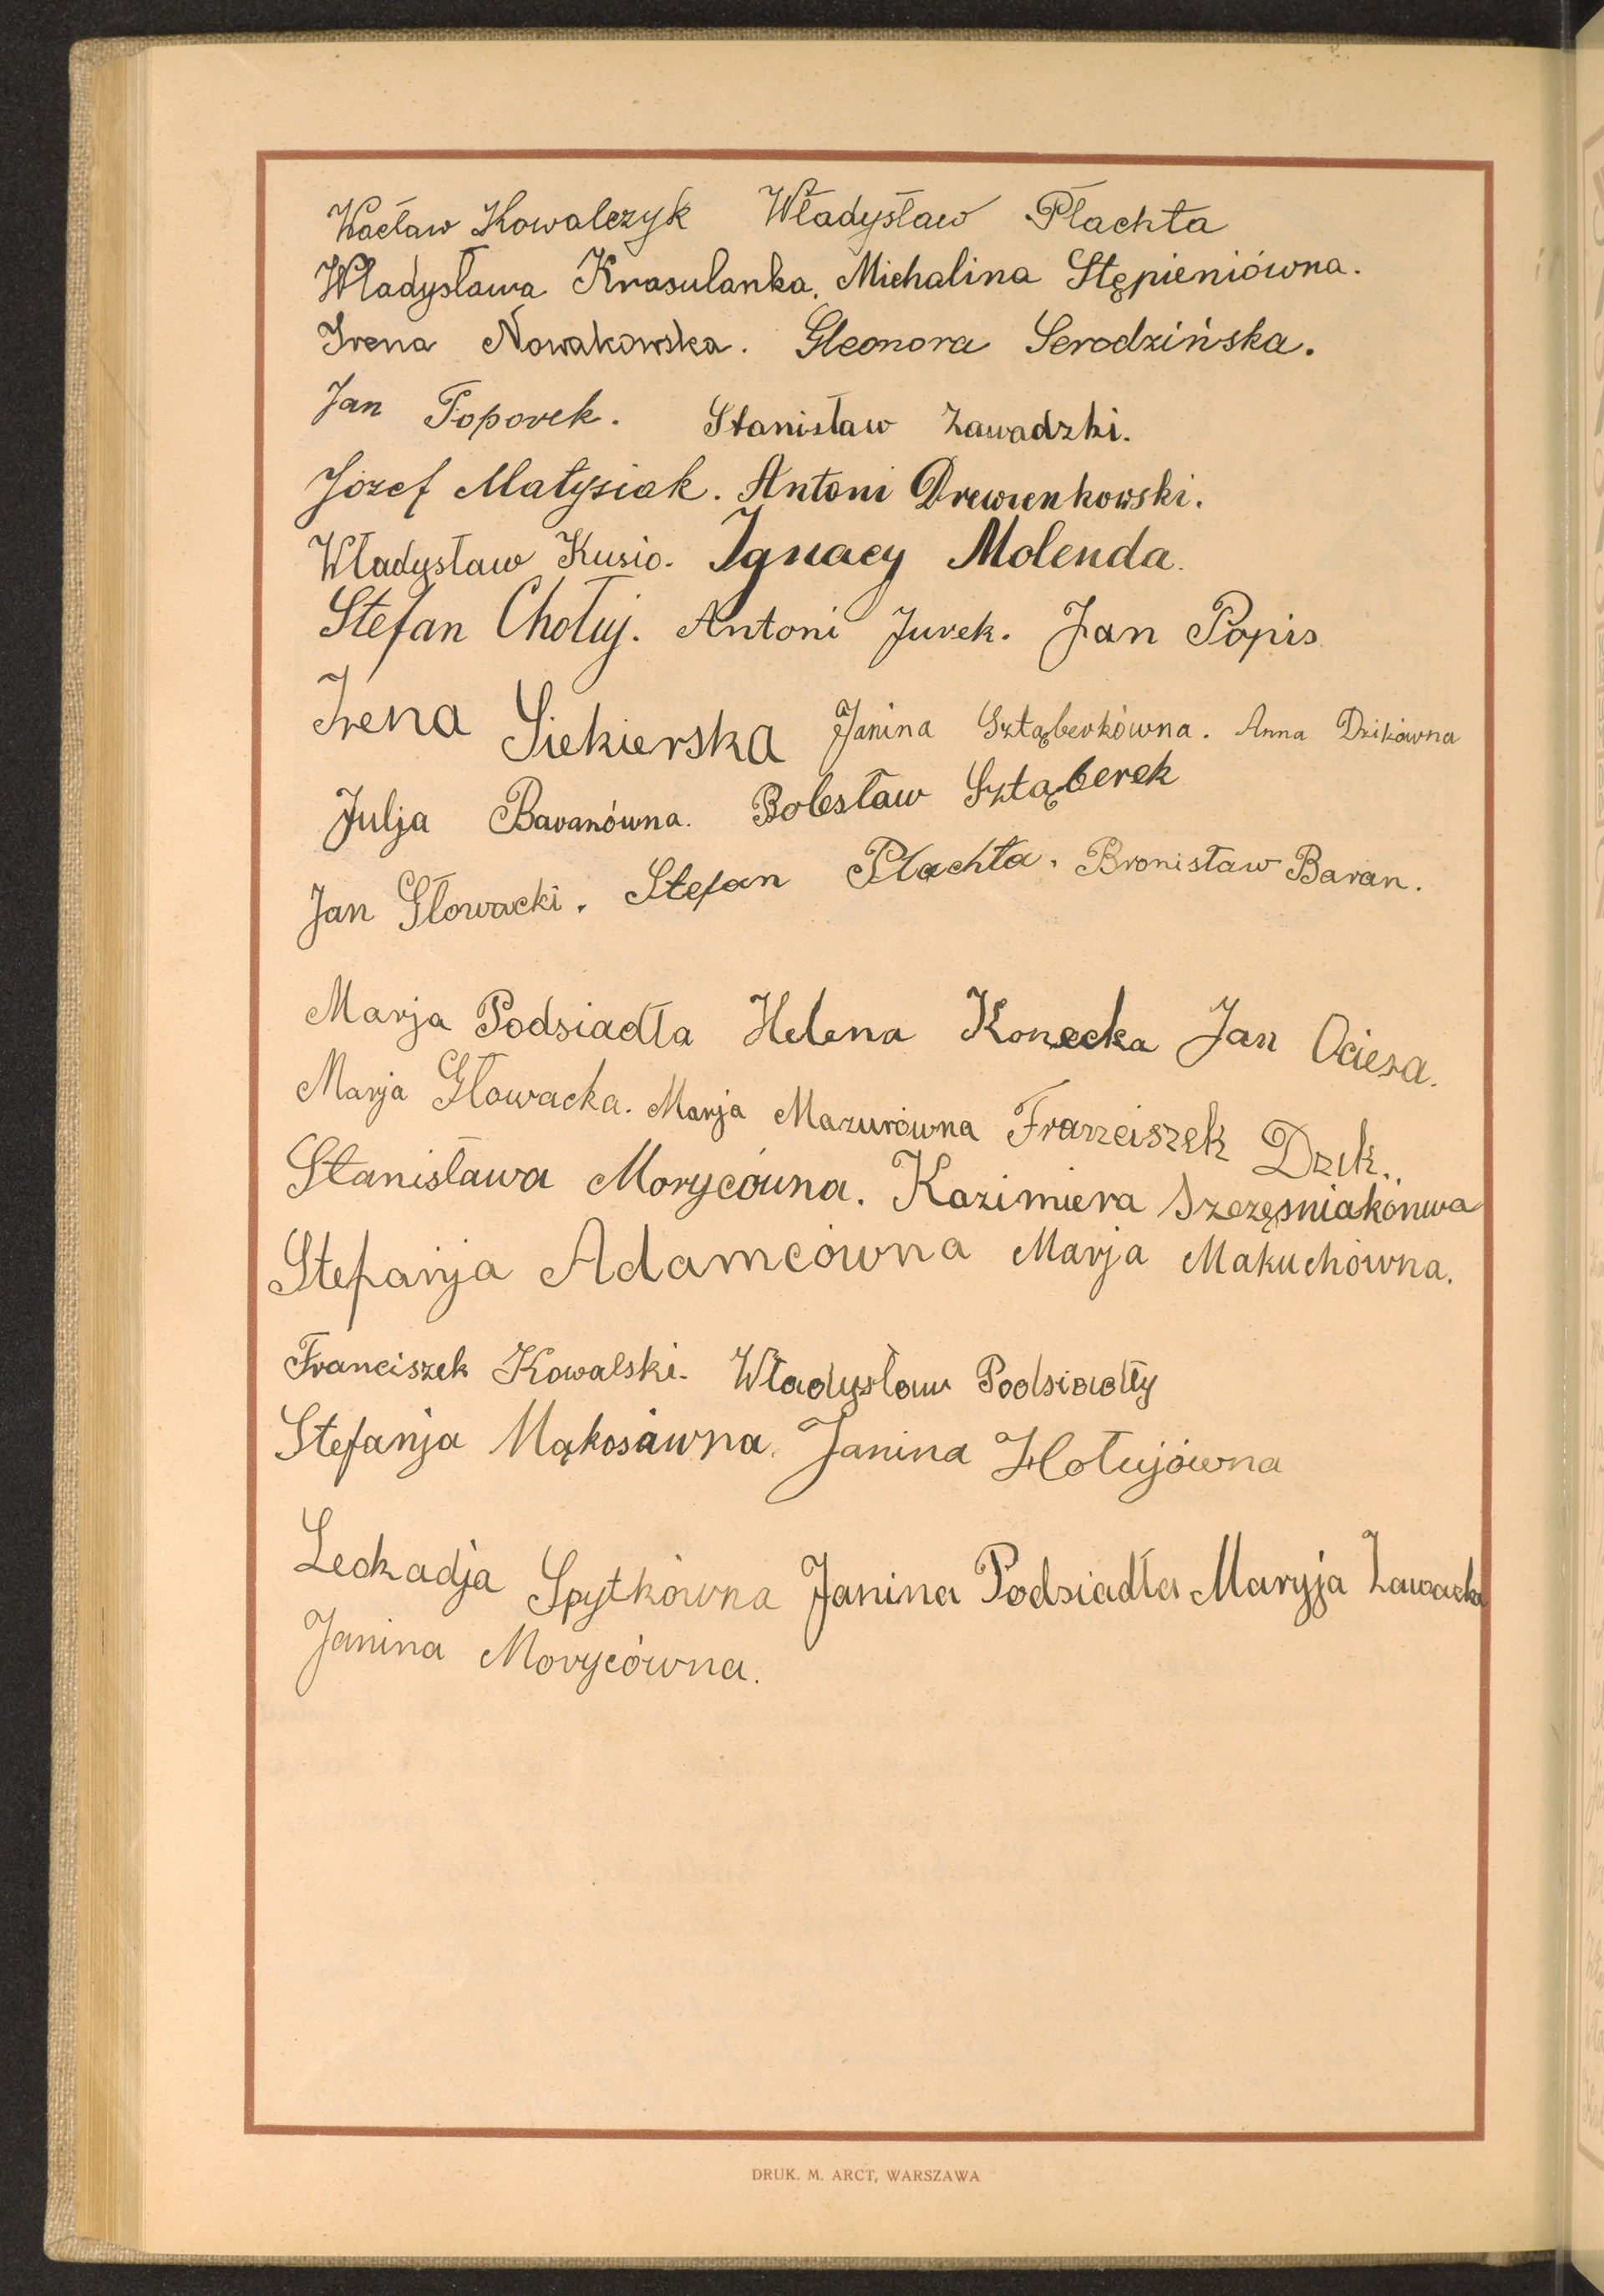 Wacław Kowalczyk Władysław Płachta
Władysława Krasulanka. Michalina Stępieniówna.
Irena Nowakowska. Eleonora Serodzińska.
Jan Toporek. Stanisław Zawadzki.
Józef Matysiak. Antoni Drewienkowski.
Władysław Kusio. Ignacy Molenda.
Stefan Chołuj. Antoni Jurek. Jan Popis
Irena Siekierska Janina Sztąberkówna. Anna Dzikówna
Julja Baranówna. Bolesław Sztąberek
Jan Głowacki. Stefan Płachta. Bronisław Baran.
Marja Podsiadła Helena Konecka Jan Ociesa.
Marja Głowacka. Marja Mazurówna Franciszek Dzik.
Stanisława Morycówna. Kazimiera Szczęśniakónwa
Stefanja Adamcówna Marja Makuchówna.
Franciszek Kowalski. Władysław Podsiadły
Stefanja Mąkosówna. Janina Hołujówna
Leokadja Spytkówna Janina Podsiadła Maryja Zawacka
Janina Morycówna.
DRUK. M. ARCT, WARSZAWA